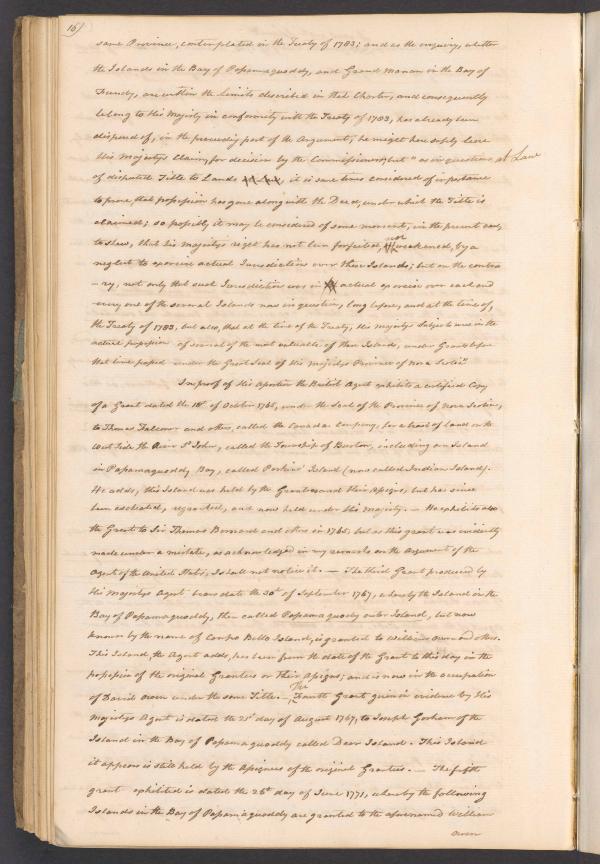 16)
same Province, contemplated in the Treaty of 1783; and as the enquiry, whether
the Islands in the Bay of Passamaquoddy, and Grand Manan in the Bay of
Fundy, are within the Limits described in that Charter, and consequently
belong to His Majesty in conformity with the Treaty of 1783, has already been
disposed of, in the preceeding part of the Argument, he might here safely leave
His Majestys Claim, for decision by the Commissioners, but "as in questions at Law
of disputed Title to Lands it is some times considered of importance
to prove, that possession has gone along with the Deed, under which the Title is
claimed; so possibly it may be considered of some moment, in the present case,
to shew, that his majestys right has not been forfeited, nor weakened, by a
neglect to exercise actual Jurisdiction over these Islands; but on the contra
- ry, not only that such Jurisdiction was in actual exercise over each and
every one of the several Islands now in question, long before, and at the time of,
the Treaty of 1783, but also, that at the time of the Treaty, His Majestys Subjects were in the
actual possession of several of the most valuable of these Islands, under Grants before
that time passed under the Great Seal of His Majestys Province of Nova Scotia"
In proof of His assertion the British Agent exhibits a certified Copy
of a Grant dated the 18th of October 1765, under the Seal of the Province of Nova Scotia,
to Thomas Falconer and others, called the Canada Company, for a tract of Land on the
West side the River St John, called the Township of Burton, including an Island
in Passamaquoddy Bay, called Perkins' Island (now called Indian Island).
He adds, this Island was held by the Grantees and their Assigns, but has since
been escheated, regranted, and now held under His Majesty. — He exhibits also
the Grant to Sir Thomas Bernard and others in 1765, but as this grant was evidently
made under a mistake, as acknowledged in my remarks on the Argument of the
Agent of the United States, I shall not notice it. — The third Grant produced by
His Majestys Agent bears date the 30th of September 1767, whereby the Island in the
Bay of Passamaquoddy, then called Passamaquody outer Island, but now
known by the name of Campo Bello Island, is granted to William Owen and others.
This Island, the Agent adds, has been from the date of the Grant to this day in the
possession of the original Grantees or Their Assigns; and is now in the occupation
of David Owen under the same Title. — The Fourth Grant given in evidence by His
Majestys Agent is dated the 21st day of August 1767, to Joseph Gorham of the
Island in the Bay of Passamaquoddy called Deer Island. This Island
it appears is still held by the Assignees of the original Grantees. — The fifth
grant exhibited is dated the 26th day of June 1771, whereby the following
Islands in the Bay of Passamaquoddy are granted to the aforenamed William
Owen